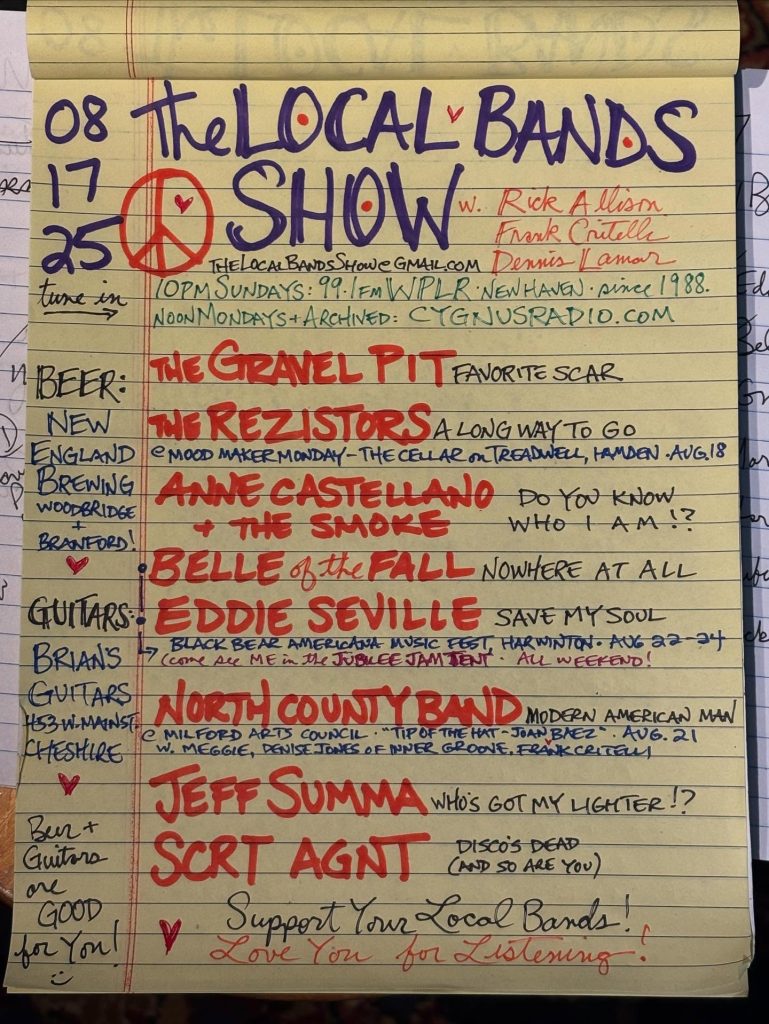 08
17
25
tune in
The LOCAL BANDS
SHOW
w. Rick Allison
Frank Critelli
Dennis Lamar
THELOCALBANDSSHOW@GMAIL.COM
10PM SUNDAYS: 99.1FM WPLR · NEW HAVEN · since 1988.
NOON MONDAYS + ARCHIVED: CYGNUSRADIO.COM
BEER:
NEW
ENGLAND
BREWING
WOODBRIDGE
+
BRANFORD!
GUITARS:
BRIAN'S
GUITARS
453 W. MAIN ST.
CHESHIRE
Beer +
Guitars
are
GOOD
for You!
THE GRAVEL PIT FAVORITE SCAR
THE REZISTORS A LONG WAY TO GO
@ MOOD MAKER MONDAY - THE CELLAR on TREADWELL, HAMDEN · AUG. 18
ANNE CASTELLANO DO YOU KNOW
+ THE SMOKE WHO I AM!?
BELLE of the FALL NOWHERE AT ALL
EDDIE SEVILLE SAVE MY SOUL
BLACK BEAR AMERICANA MUSIC FEST, HARWINTON · AUG 22-24
(come see ME in the JUBILEE JAM TENT · ALL WEEKEND!
NORTH COUNTY BAND MODERN AMERICAN MAN
@ MILFORD ARTS COUNCIL · "TIP OF THE HAT - JOAN BAEZ" · AUG. 21
W. MEGGIE, DENISE JONES OF INNER GROOVE, FRANK CRITELLI
JEFF SUMMA WHO'S GOT MY LIGHTER!?
SCRT AGNT DISCO'S DEAD
(AND SO ARE YOU)
Support Your Local Bands!
Love You for Listening!